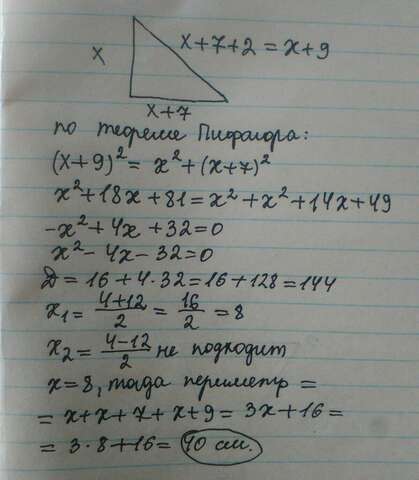 x
x+7+2=x+9
x+7
по теореме Пифагора:
(x+9)²= x²+(x+7)²
x²+18x+81=x²+x²+14x+49
-x²+4x+32=0
x²-4x-32=0
D=16+4·32=16+128=144
x₁= 4+12/2 = 16/2 =8
x₂= 4-12/2 не подходит
x=8, тогда периметр =
= x+x+7+x+9=3x+16=
= 3·8+16= 40 см.